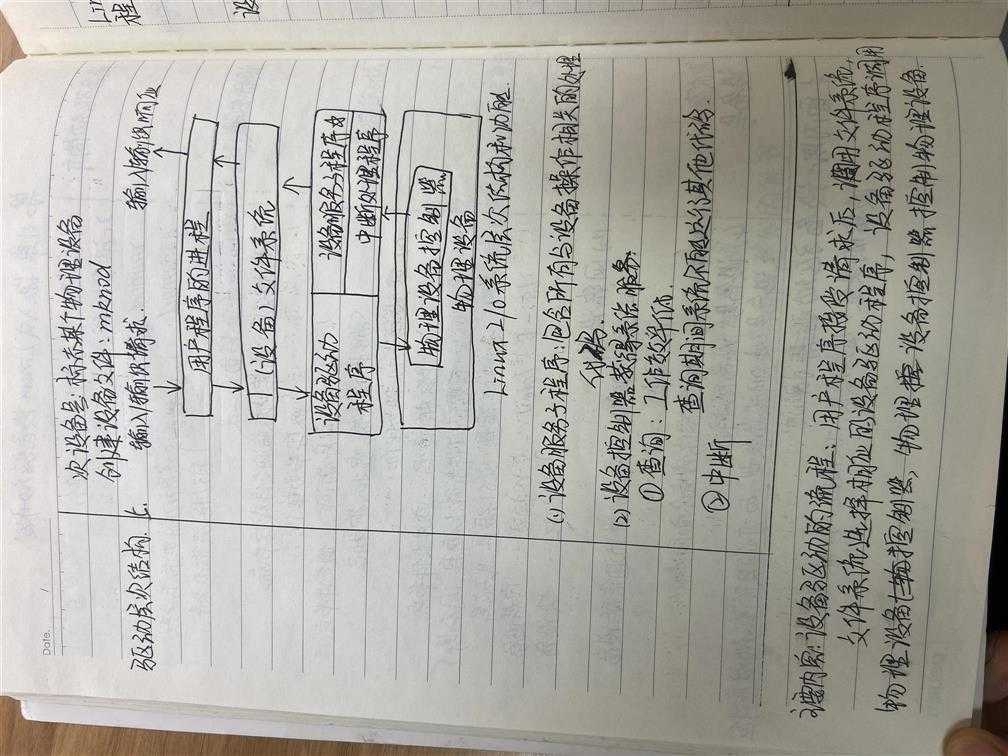 Date.
次设备号:标示某个物理设备
创建设备文件:mknod
驱动层次结构
输入输出请求
输入输出响应
用户程序的进程
(设备)文件系统
设备驱动
程序
设备服务子程序
中断处理程序
物理设备控制器
物理设备
Linux I/O系统层次结构和功能
(1)设备服务子程序:包含所有与设备操作相关的处理
代码
(2)设备控制器数据操作服务
①查询:工作效率低
查询期间系统不能运行其他代码.
②中断
设备驱动的流程:用户程序接受请求后,调用文件系统,
文件系统选择相应的设备驱动程序,设备驱动程序调用
物理设备控制器,物理设备控制器控制物理设备.